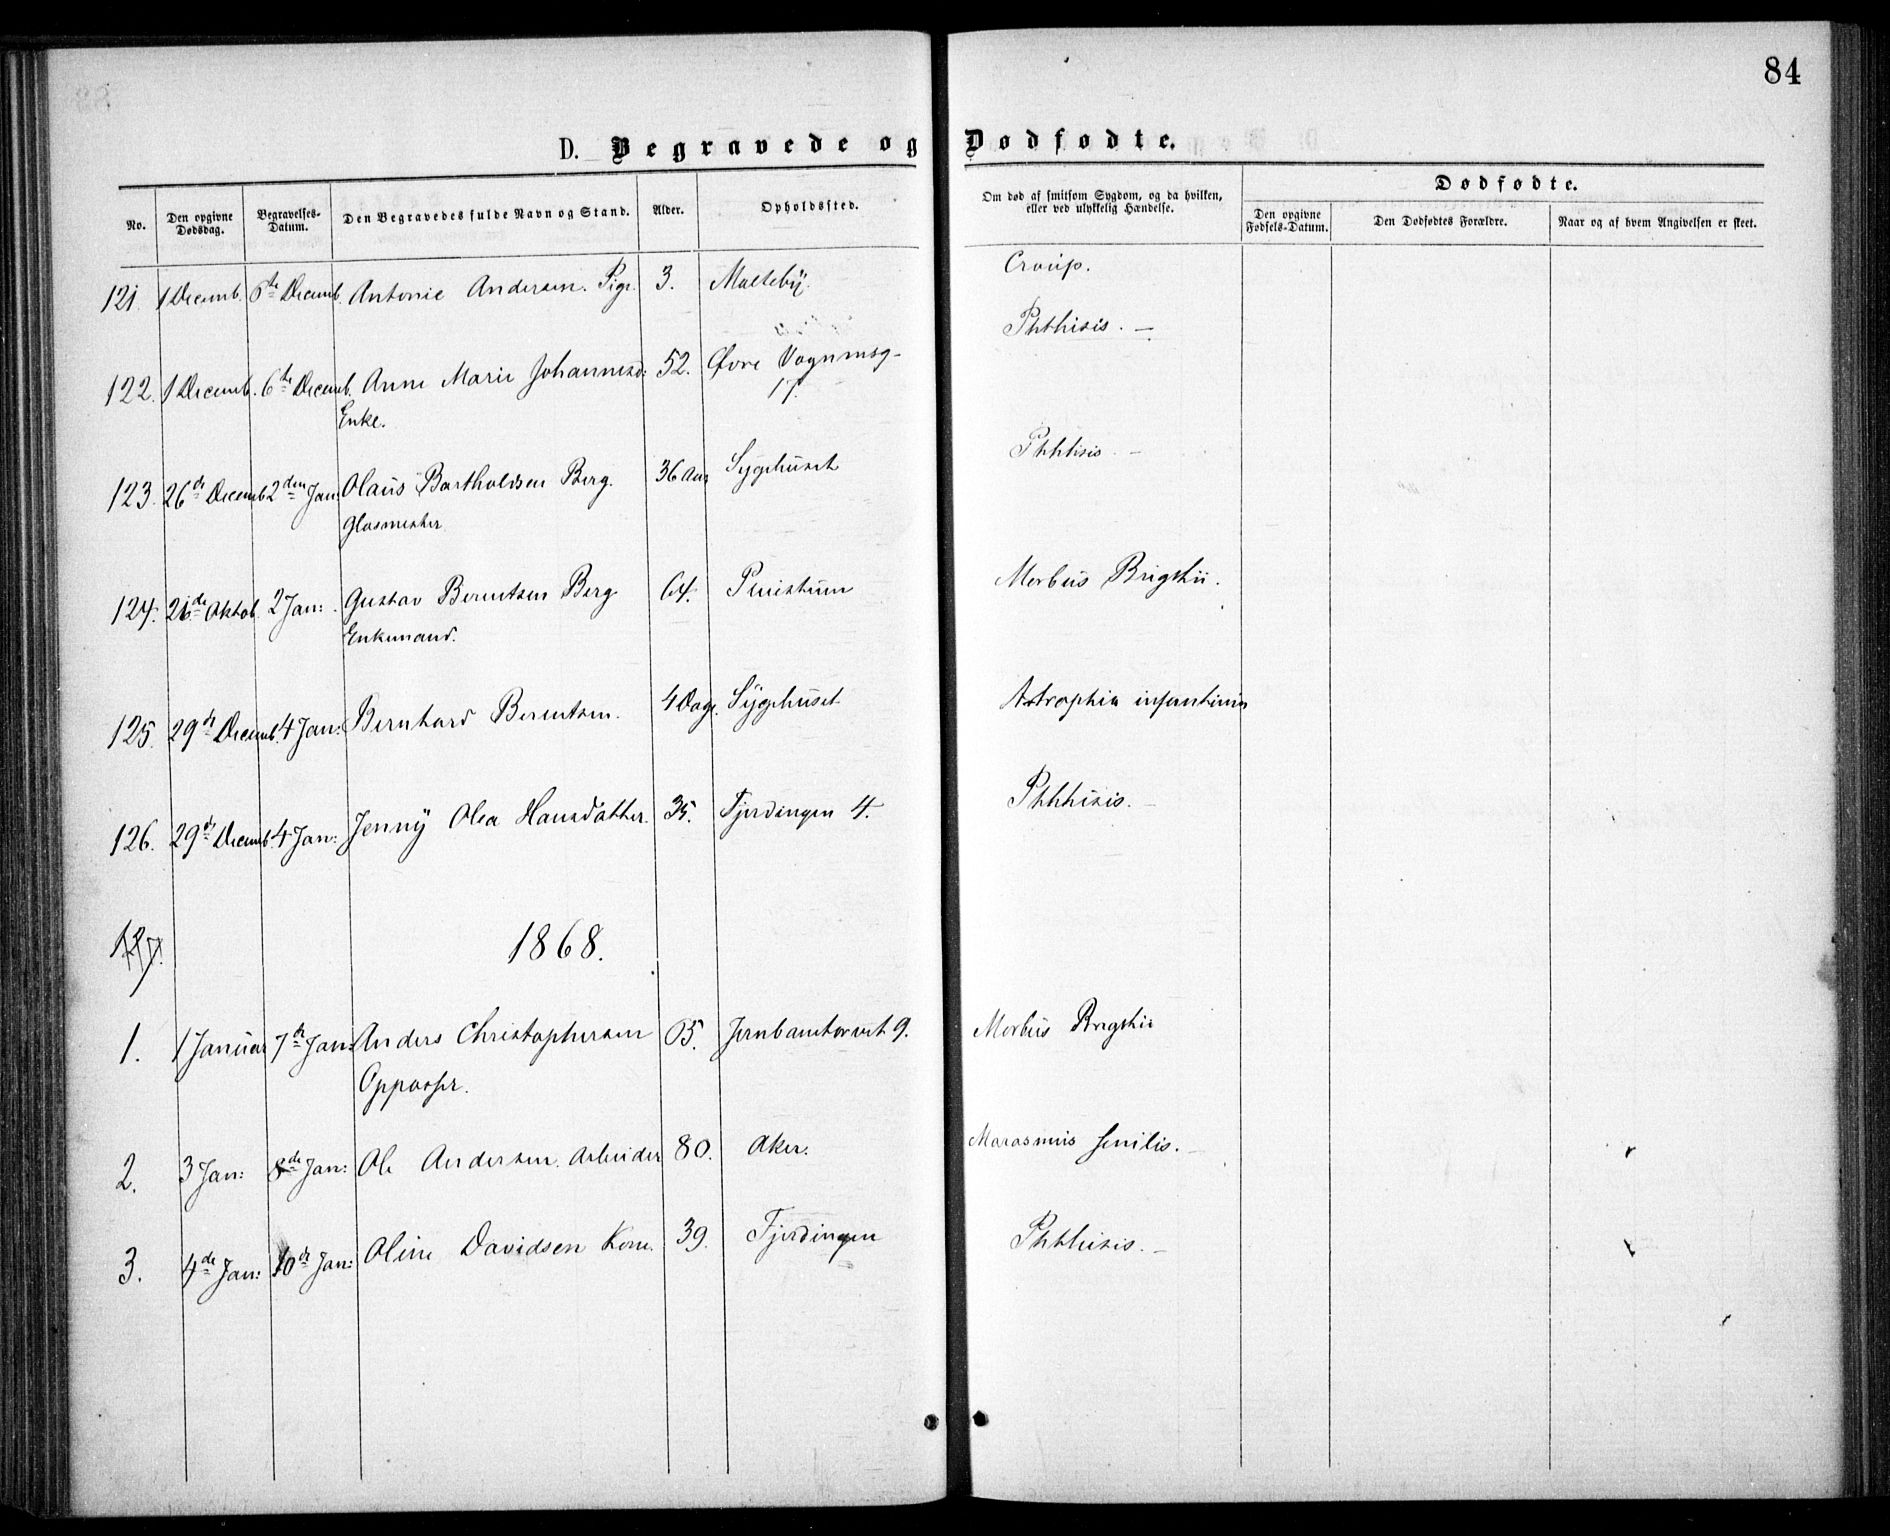 84
D. Begravede og Dødfødte.
No. Den opgivne Dødsdag. Begravelses-Datum. Den Begravedes fulde Navn og Stand. Alder. Opholdssted. Om død af smitsom Sygdom, og da hvilken, eller ved ulykkelig Hændelse. Dødfødte.
Den opgivne Fødsels-Datum. Den Dødfødtes Forældre. Naar og af hvem Angivelsen er skeet.
121. 1 Decemb. 6te Decemb. Antonie Andersen. Pige. 3. Malteby. Croup.
122. 1 Decemb. 6te Decemb. Anne Marie Johannesd: 52. Øvre Vognmsg- Phthisis. —
Enke. 17.
123. 26de Decemb 2den Jan Olaus Bartholdsen Berg. 36 Aar Sygehuset Phthisis —
Glasmester.
124. 26de Oktob. 2 Jan: Gustav Berentsen Berg 64. Morbus Brigthii.
Enkemand.
125. 29de Decemb. 4 Jan: Bernhard Berentsen. 4 Dage. Sygehuset Atrophia infantium
126. 29de Decemb. 4 Jan: Jenny Olea Hansdatter. 35. Fjerdingen 4. Phthisis. —
127.
1868.
1. 1 Januar 7de Jan: Anders Christophersen 65. Jernbantorvet 9. Morbus Brigthii
Oppasser.
2. 3 Jan: 8de Jan: Ole Andersen. Arbeider 80. Aker. Marasmus senilis. —
3. 4de Jan: 10de Jan: Oline Davidsen Kone. 39. Fjerdingen Phthisis. —